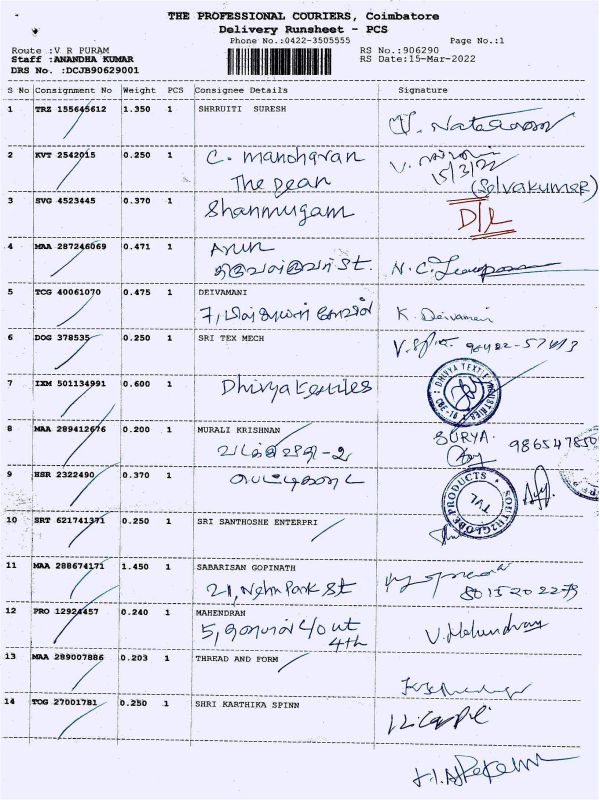 THE PROFESSIONAL COURIERS, Coimbatore
Delivery Runsheet - PCS
Phone No.:0422-3505555 Page No.:1
Route :V R PURAM RS No.:906290
Staff :ANANDHA KUMAR RS Date:15-Mar-2022
DRS No. :DCJB90629001
S No Consignment No Weight PCS Consignee Details Signature
1 TRZ 155645612 1.350 1 SHRRUITI SURESH
2 KVT 2542015 0.250 1 C. manoharan
The Dean 15/3/22 (Selvakumar)
3 SVG 4523445 0.370 1 Shanmugam D/L
4 MAA 287246069 0.471 1 Arun
St. N.C.
5 TCG 40061070 0.475 1 DEIVAMANI
7, K. Deivamani
6 DOG 378535 0.250 1 SRI TEX MECH
7 IXM 501134991 0.600 1 Dhivya textiles DHIVYA TEXTILE INDUSTRIES
8 MAA 289412676 0.200 1 MURALI KRISHNAN SURYA. 986547850
9 HSR 2322490 0.370 1
SORTH2GLOBE PRODUCTS TVL
10 SRT 621741371 0.250 1 SRI SANTHOSHE ENTERPRI
11 MAA 288674171 1.450 1 SABARISAN GOPINATH
21, Nehru Park St
12 PRO 12924457 0.240 1 MAHENDRAN
5, 4th V. Mahendran
13 MAA 289007886 0.203 1 THREAD AND FORM
14 TOG 27001781 0.250 1 SHRI KARTHIKA SPINN